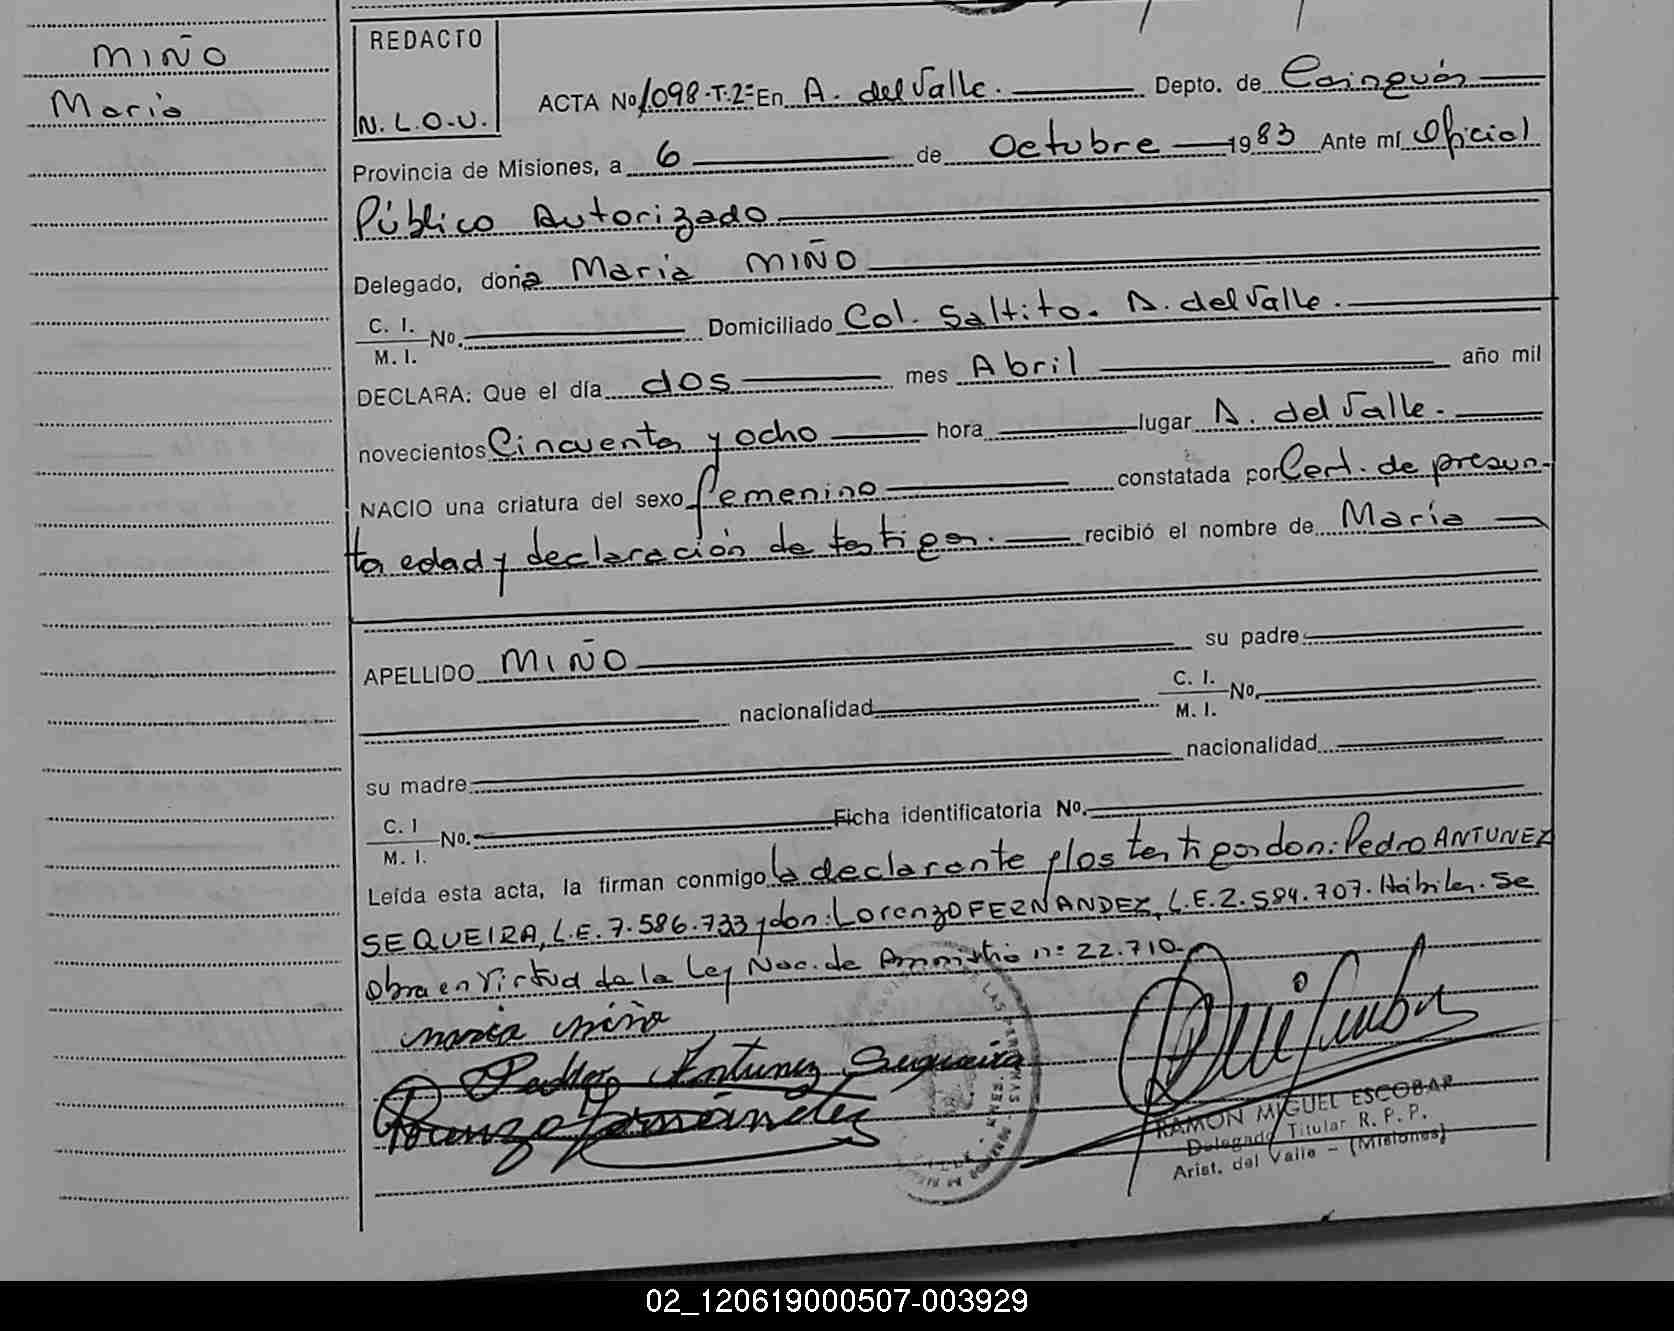 MIÑO
María
REDACTO
N.L.O.U.
ACTA No 1098-T.2º En A. del Valle. Depto. de Cainguás
Provincia de Misiones, a 6 de Octubre 1983 Ante mí Oficial
Público Autorizado
Delegado, doña María MIÑO
C. I.
M. I. No. Domiciliado Col. Saltito. A. del Valle.
DECLARA: Que el día dos mes Abril año mil
novecientos Cincuenta y ocho hora lugar A. del Valle.
NACIO una criatura del sexo femenino constatada por Cert. de presun-
ta edad y declaración de testigos. recibió el nombre de María
APELLIDO MIÑO su padre
nacionalidad C. I.
M. I. No.
su madre nacionalidad
C. I
M. I. No. Ficha identificatoria No.
Leída esta acta, la firman conmigo la declarante y los testigos don: Pedro ANTUNEZ
SEQUEIRA, L.E. 7.586.733 y don: Lorenzo FERNANDEZ, L.E. 2.584.707. Hábiles. Se
obra en virtud de la Ley Nac. de Amnistía nº 22.710
maria miño
Pedro Antunez Sequeira
Lorenzo Fernández
RAMON MIGUEL ESCOBAR
Delegado Titular R. P. P.
Arist. del Valle - (Misiones)
02_120619000507-003929